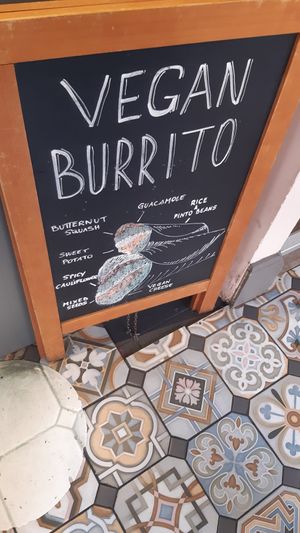 VEGAN
BURRITO
GUACAMOLE
RICE
&
PINTO BEANS
BUTTERNUT
SQUASH
SWEET
POTATO
SPICY
CAULIFLOWER
MIXED
SEEDS
VEGAN
CHEESE